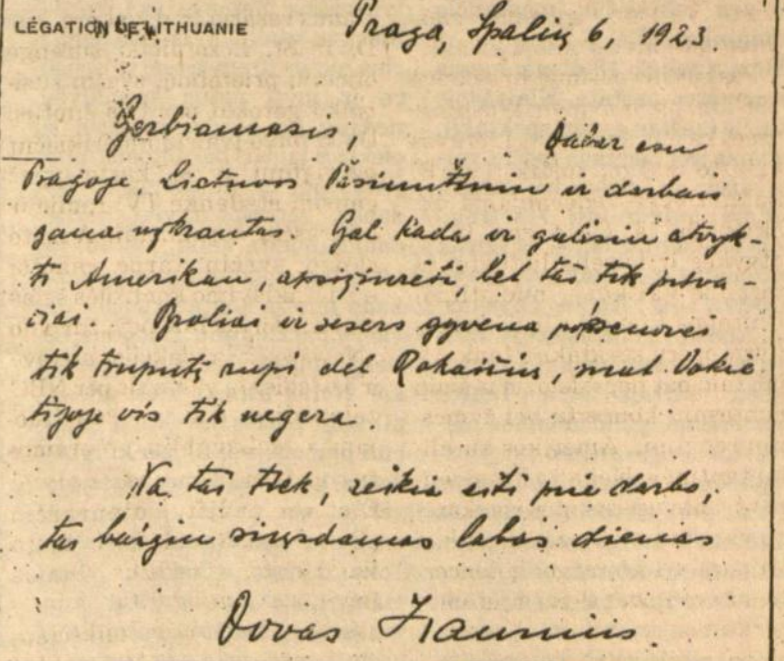 LÉGATION DE LITHUANIE
Praga, Spalių 6, 1923
Gerbiamasis,
Dabar esu
Pragoje, Lietuvos Pasiuntiniu ir darbais
gana užkrautas. Gal kada ir galėsiu atvyk-
ti Amerikon, apsižiurėti bet tas tik priva-
čiai. Broliai ir sesers gyvena po senovei
tik truputi rupi del Rokaičių, mat Vokie
tijoje vis tik negera.
Na tai tiek, reikia eiti prie darbo,
tat baigiu siųsdamas labas dienas
Dovas Zaunius.